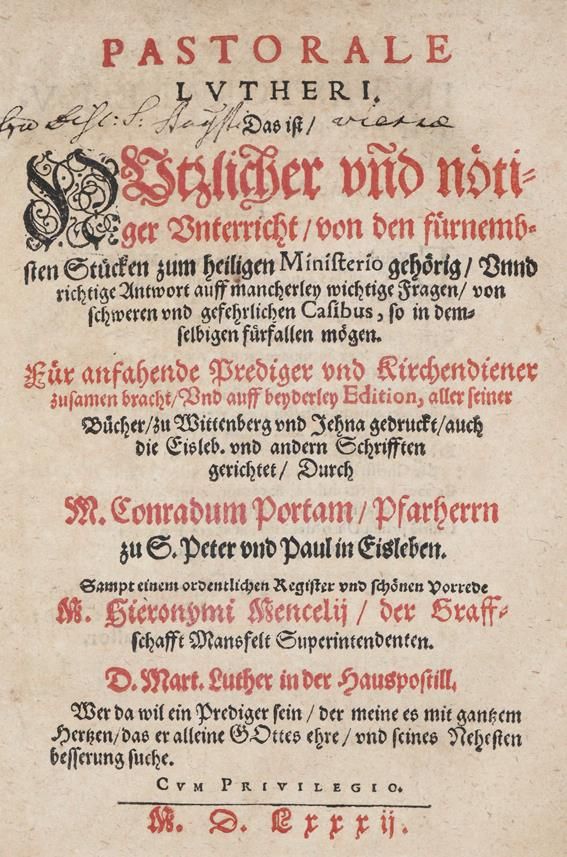 PASTORALE
LVTHERI.
Das ist/
NVtzlicher vñd nöti-
ger Vnterricht/von den fürnemb-
sten Stücken zum heiligen Ministerio gehörig/ Vnnd
richtige Antwort auff mancherley wichtige Fragen/ von
schweren vnd gefehrlichen Casibus, so in dem-
selbigen fürfallen mögen.
Für anfahende Prediger vnd Kirchendiener
zusamen bracht/Vnd auff beyderley Edition, aller seiner
Bücher/zu Wittenberg vnd Jehna gedruckt/auch
die Eisleb. vnd andern Schrifften
gerichtet/ Durch
M. Conradum Portam/ Pfarherrn
zu S. Peter vnd Paul in Eisleben.
Sampt einem ordentlichen Register vnd schönen Vorrede
M. Hieronymi Mencelij/ der Graff-
schafft Mansfelt Superintendenten.
D. Mart. Luther in der Hauspostill.
Wer da wil ein Prediger sein/ der meine es mit gantzem
Hertzen/das er alleine GOttes ehre/ vnd seines Nehesten
besserung suche.
CVM PRIVILEGIO.
M. D. Lxxxij.